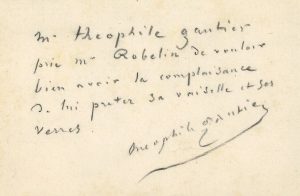 mr theophile gautier
prie mr Robelin de vouloir
bien avoir la complaisance
de lui preter sa vaiselle et ses
verres.
theophile gautier